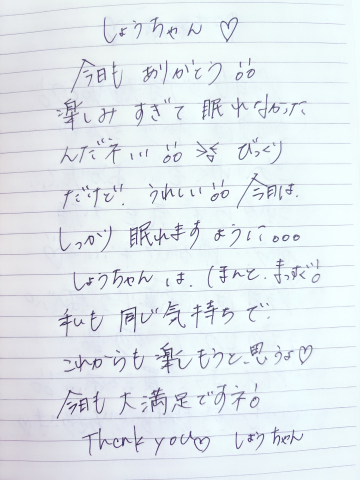 しょうちゃん♡
今日も ありがとう!!
楽しみ すぎて 眠れなかった
んだネ… !! びっくり
だけど、うれしい!! 今日は、
しっかり 眠れます ように。。。
しょうちゃん は、ほんと、まっすぐ!
私も 同じ気持ちで、
これからも 楽しもうと、思うよ♡
今日も 大満足ですネ!
Thank you♡ しょうちゃん